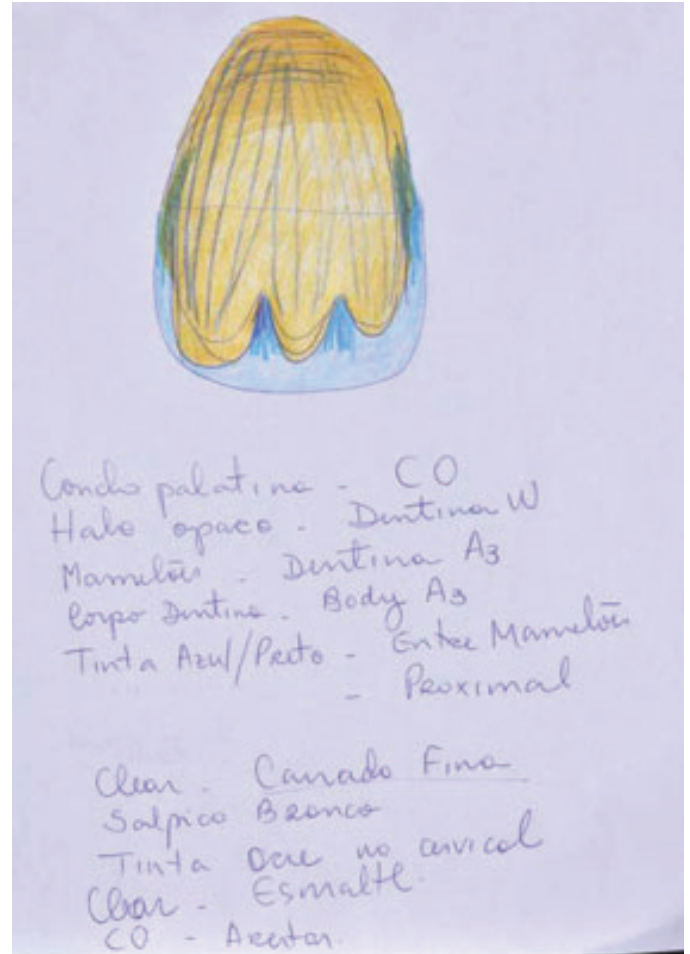 Concha palatina - CO
Halo opaco - Dentina W
Mamelões - Dentina A3
Corpo Dentina - Body A3
Tinta Azul/Preto - Entre Mamelões
- Proximal
Clear - Camada Fina
Salpico Branco
Tinta Ocre no cervical
Clear - Esmalte.
CO -